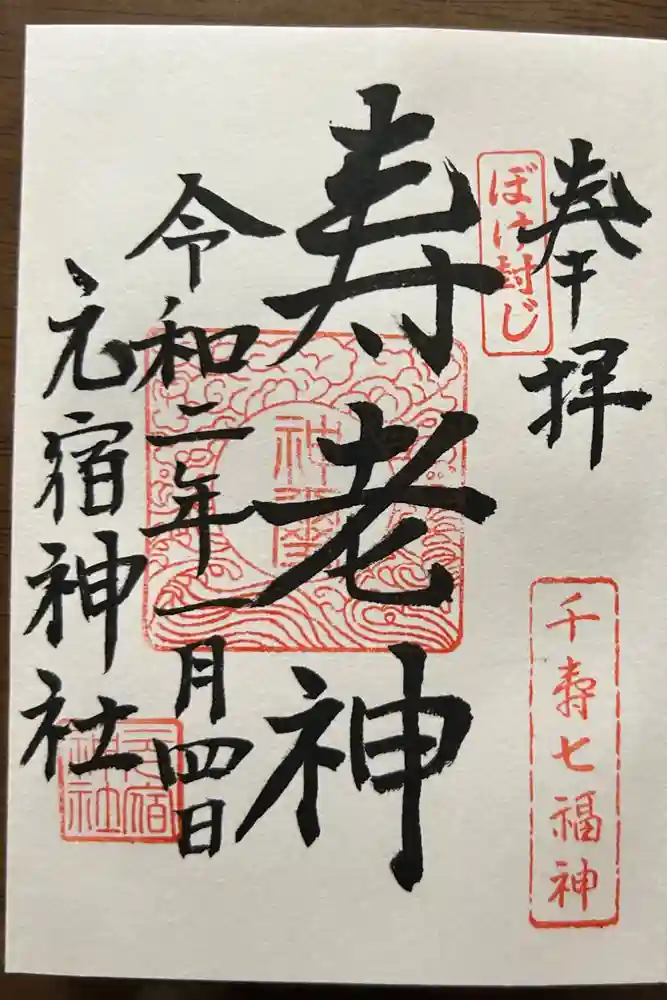 奉拝
ぼけ封じ
千寿七福神
寿老神
令和二年一月四日
元宿神社
元宿神社